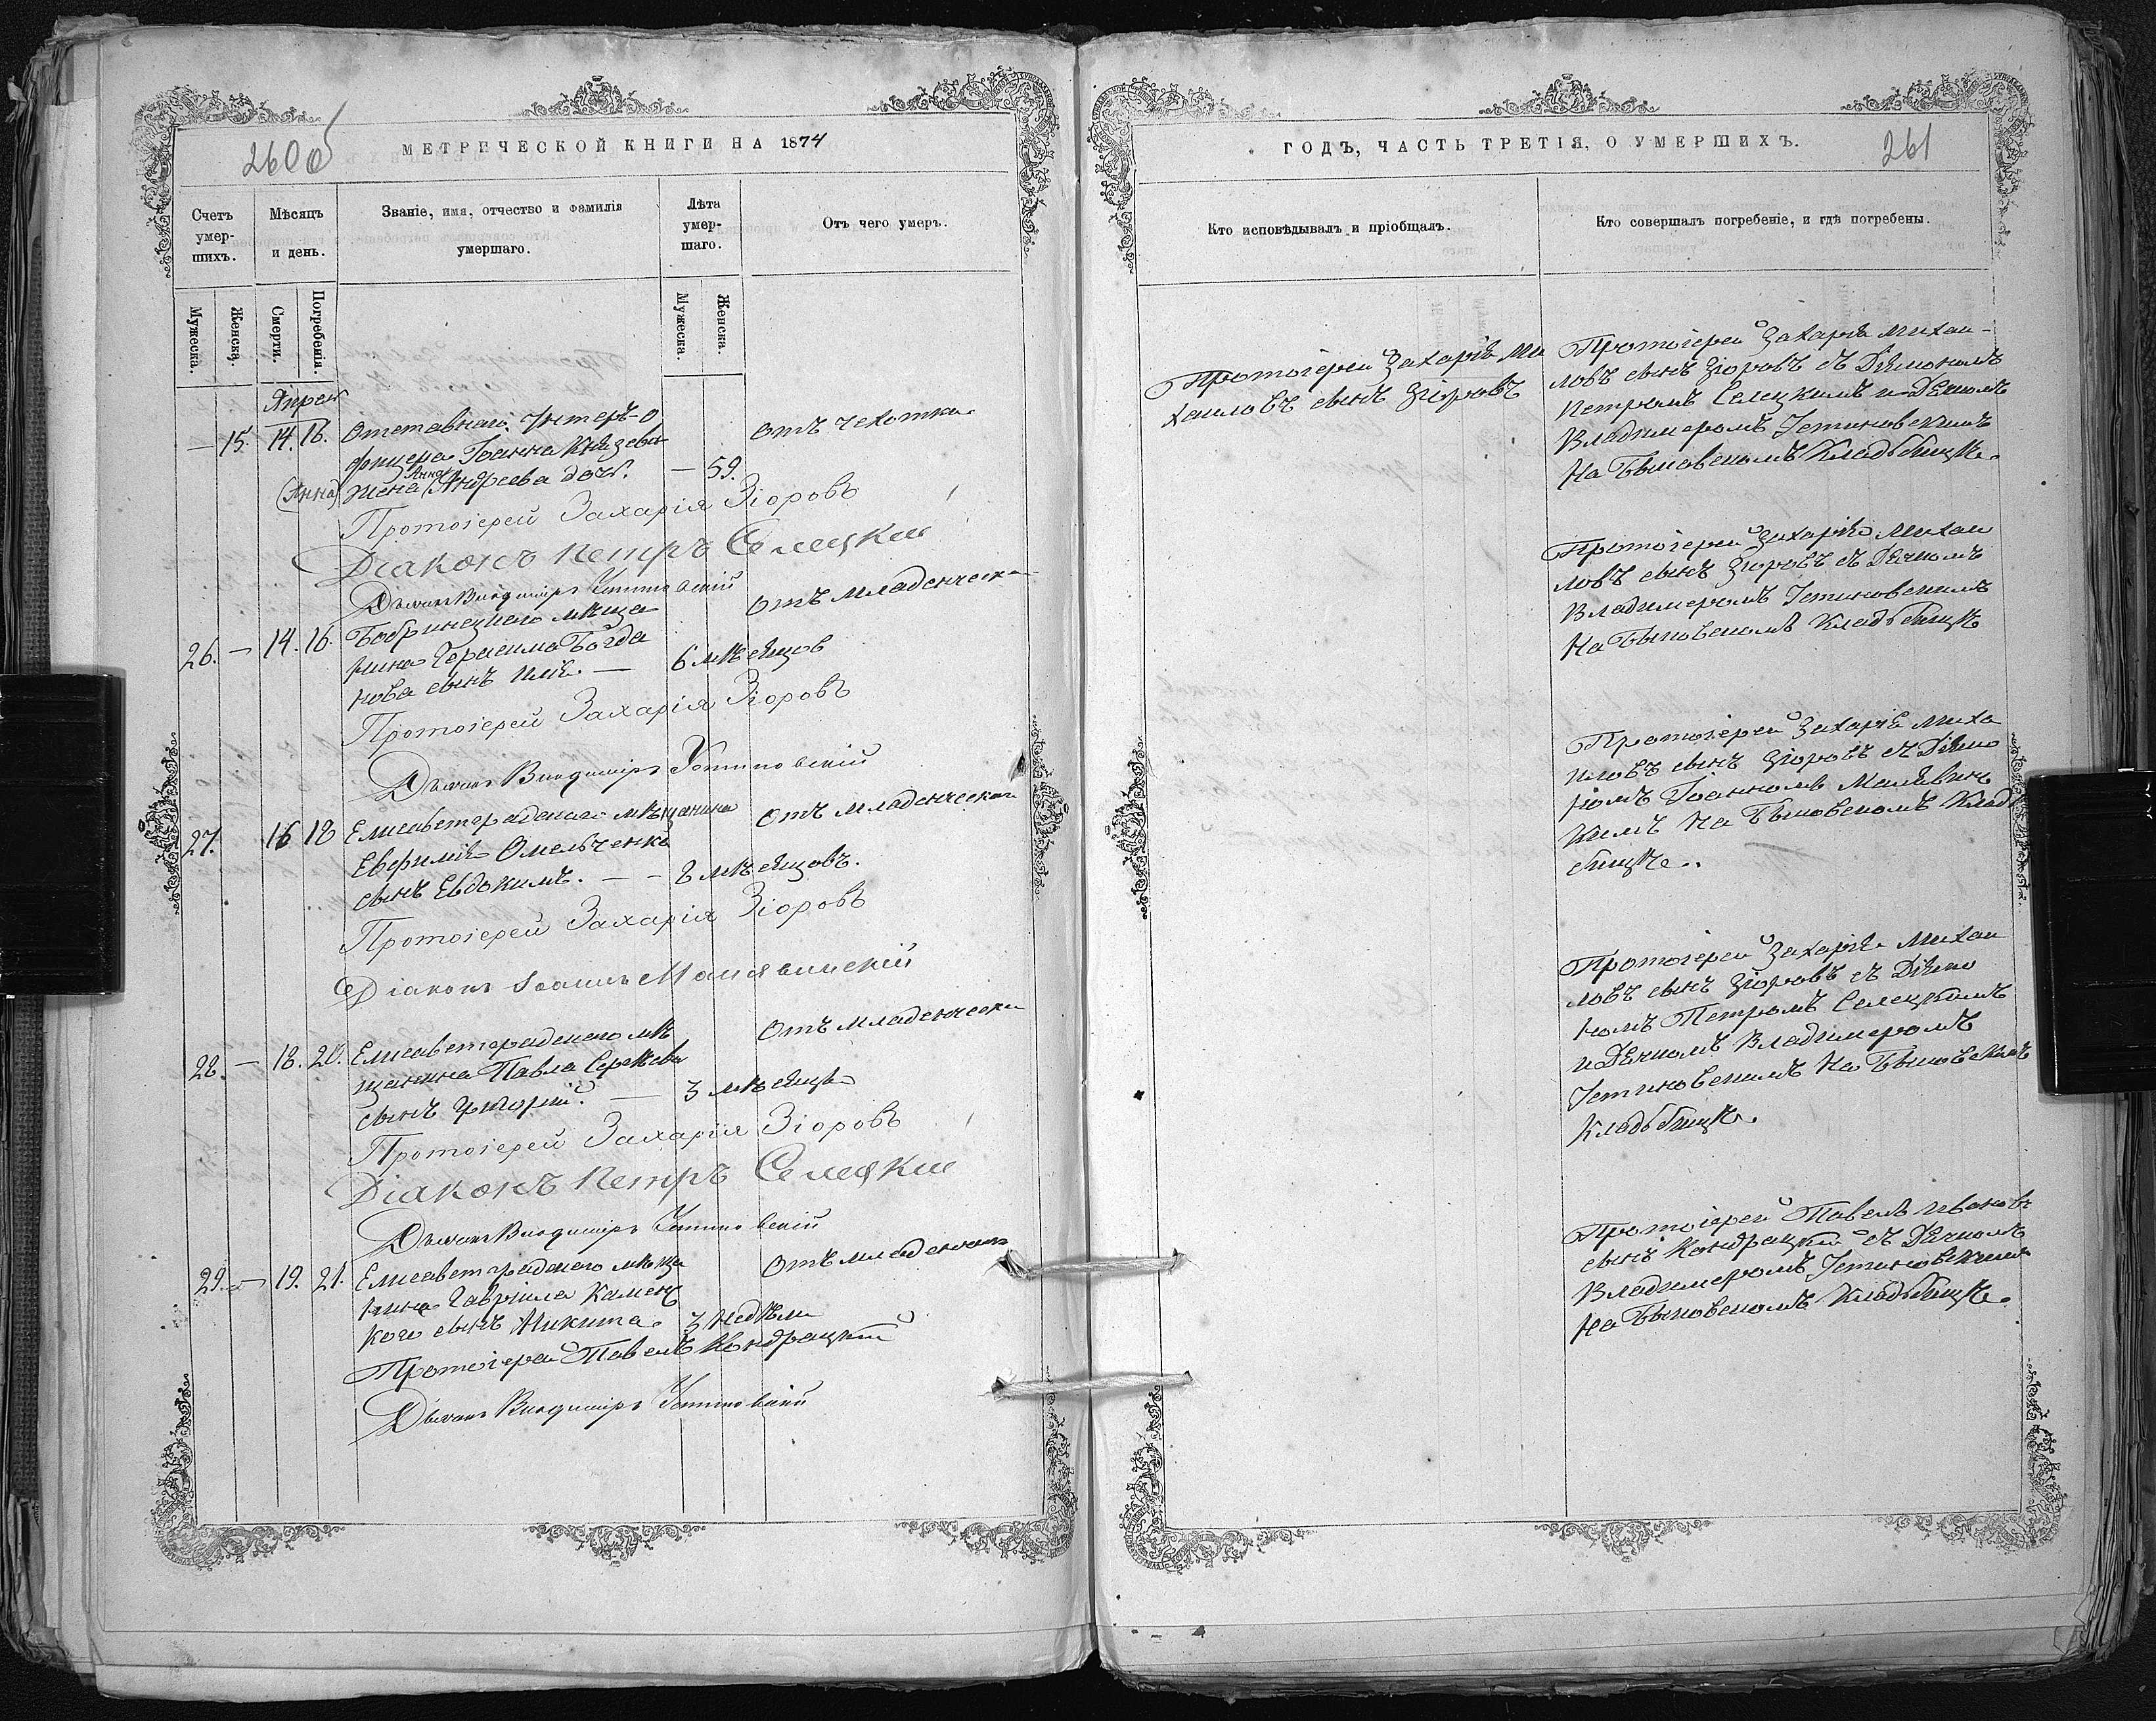 260 об
МЕТРИЧЕСКОЙ КНИГИ НА 1874
Счетъ умер-шихъ.
Мѣсяцъ и день.
Званіе, имя, отчество и фамилія умершаго.
Лѣта умер-шаго.
Отъ чего умеръ.
Мужеска.
Женска.
Смерти.
Погребенія.
Мужеска.
Женска.
Апрел
— 15. 14. 16. Отставнаго Унтеръ-о
фицера Іоанна Князева
Анна
(Анна) жена (Андреева дочь. — 59.
отъ чахотки
Протоіерей Захарія Зіоровъ
Діаконъ Петръ Селецкій
Дьячокъ Владиміръ Устиновскій
26. — 14. 16. Бобринецкаго мѣща
нина Герасима Богда
нова сынъ — 6 мѣсяцов
отъ младенческа
Протоіерей Захарія Зіоровъ
Дьячокъ Владиміръ Устиновскій
27. 16 18 Елисаветградскаго мѣщанина
Евфимія Омельченка
сынъ Евдокимъ. — — 8 мѣсяцовъ.
отъ младенческой
Протоіерей Захарія Зіоровъ
Діаконъ Іоаннъ Малявинскій
28. — 18. 20. Елисаветградскаго мѣ
щанина Павла Сергѣева
сынъ Григорій. — 3 мѣсяца
отъ младенческа
Протоіерей Захарія Зіоровъ
Діаконъ Петръ Селецкій
Дьячокъ Владиміръ Устиновскій
29. — 19. 21. Елисаветградскаго мѣща
нина Гавріила Каменс
кого сынъ Никита. 3 недѣли
отъ младенческ
Протоіерей Павелъ Кондрацкій
Дьячокъ Владиміръ Устиновскій
ГОДЪ, ЧАСТЬ ТРЕТІЯ, О УМЕРШИХЪ.
261
Кто исповѣдывалъ и пріобщалъ.
Кто совершалъ погребеніе, и гдѣ погребены.
Протоіерей Захарія Ми
хаиловъ сынъ Зіоровъ
Протоіерей Захарія Михаи-
ловъ сынъ Зіоровъ съ Діякономъ
Петромъ Селецкимъ и Дячкомъ
Владимеромъ Устиновскимъ
На Быковскомъ Кладбищѣ.
Протоіерей Захарія Михаи
ловъ сынъ Зіоровъ съ Дячкомъ
Владимеромъ Устиновскимъ
На Быковскомъ Кладбищѣ
Протоіерей Захарія Миха
иловъ сынъ Зіоровъ съ Діяко
номъ Іоанномъ Малявин
кимъ На Быковскомъ Клад
бищѣ..
Протоіерей Захарія Михаи
ловъ сынъ Зіоровъ съ Діяко
номъ Петромъ Селецкимъ
и Дячкомъ Владимеромъ
Устиновскимъ На Быковскомъ
Кладбищѣ.
Протоіерей Павелъ Ивановъ
сынъ Кондрацкій съ Дячкомъ
Владимеромъ Устиновскимъ
На Быковскомъ Кладбищѣ.